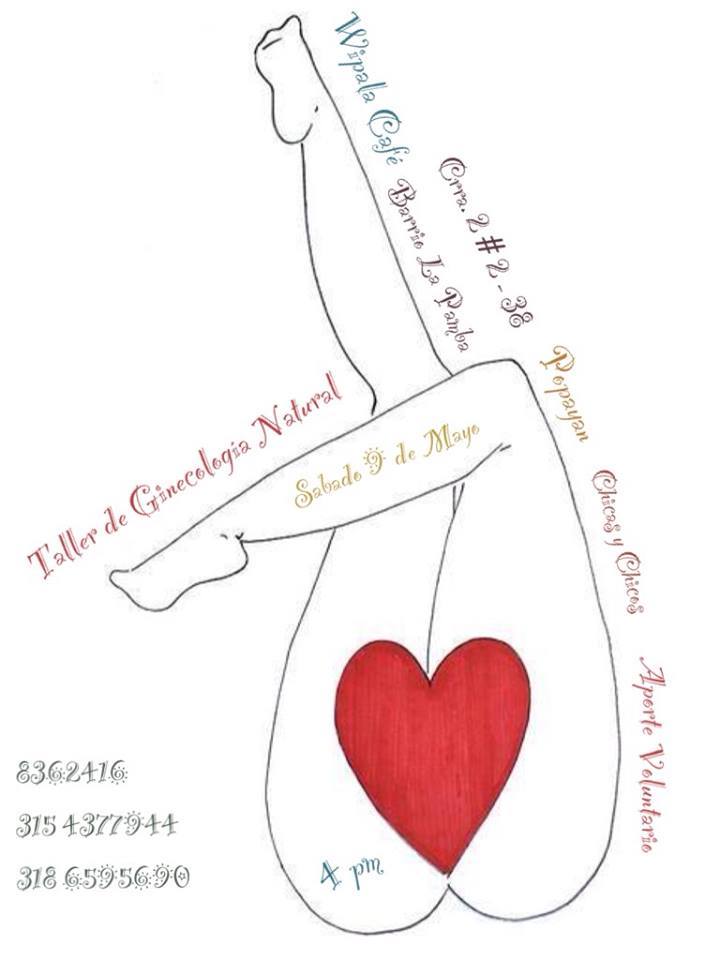 Wipala Café
Barrio La Pamba
Crra. 2 # 2 - 38
Popayan
Taller de Ginecología Natural
Sabado 9 de Mayo
Chicas y Chicos
Aporte Voluntario
8362416
315 4377944
318 6595690
4 pm